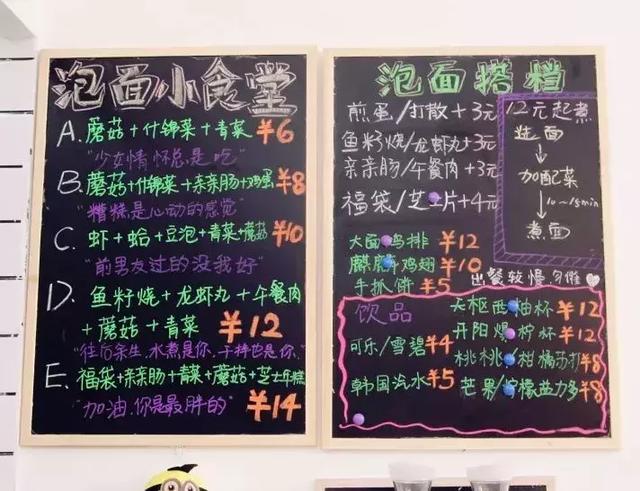 泡面小食堂
A. 蘑菇+什锦菜+青菜 ¥6
"少女情怀总是吃"
B. 蘑菇+什锦菜+亲亲肠+鸡蛋 ¥8
"糟糕是心动的感觉"
C. 虾+蛤+豆泡+青菜+蘑菇 ¥10
"前男友过的没我好"
D. 鱼籽烧+龙虾丸+午餐肉
+蘑菇+青菜 ¥12
"往后余生,水煮是你,干拌也是你"
E. 福袋+亲亲肠+青菜+蘑菇+芝士年糕
"加油,你是最胖的" ¥14
泡面搭档
煎蛋/打散+3元
鱼籽烧/龙虾丸+3元
亲亲肠/午餐肉+3元
福袋/芝士片+4元
12元起煮
选面
加配菜
10~15min
煮面
大面鸡排 ¥12
鸡翅 ¥10
手抓饼 ¥5
出餐较慢勿催
饮品
可乐/雪碧 ¥4
韩国汽水 ¥5
天枢西柚杯 ¥12
开阳烤柠杯 ¥12
桃桃柑橘苏打 ¥8
芒果/柠檬益力多 ¥8